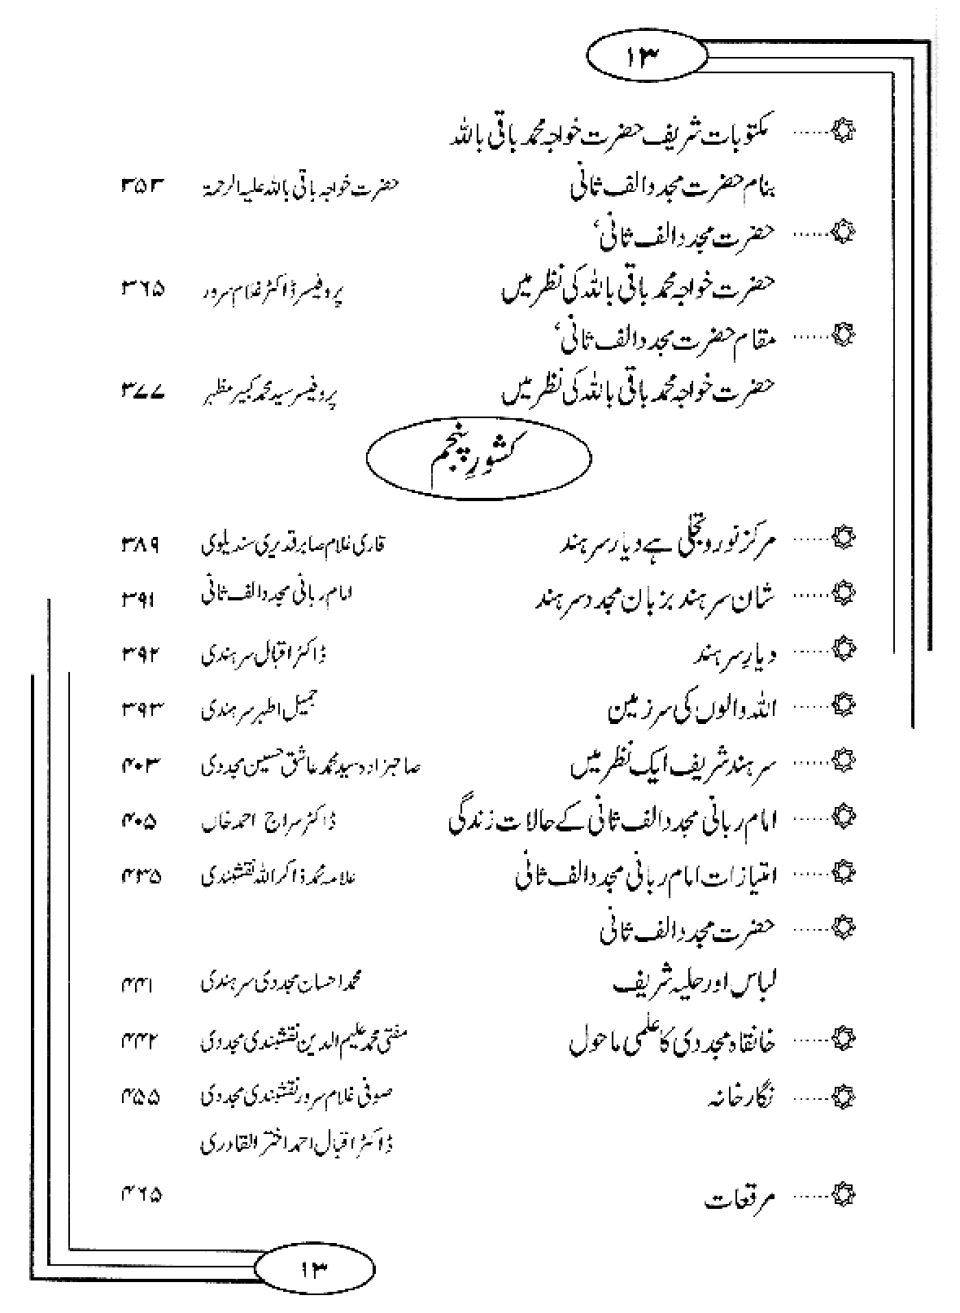 ۱۳
مکتوبات شریف حضرت خواجہ محمد باقی باللہ
بنام حضرت مجدد الف ثانی حضرت خواجہ باقی باللہ علیہ الرحمۃ ۳۵۳
حضرت مجدد الف ثانی،
حضرت خواجہ محمد باقی باللہ کی نظر میں پروفیسر ڈاکٹر غلام سرور ۳۶۵
مقام حضرت مجدد الف ثانی،
حضرت خواجہ محمد باقی باللہ کی نظر میں پروفیسر سید محمد کبیر مظہر ۳۷۷
کشورِ پنجم
مرکز نور و تجلّی ہے دیار سرہند قاری غلام صابر قدیری سندیلوی ۳۸۹
شان سرہند بزبان مجدد سرہند امام ربانی مجدد الف ثانی ۳۹۱
دیارِ سرہند ڈاکٹر اقبال سرہندی ۳۹۲
اللہ والوں کی سرزمین جمیل اطہر سرہندی ۳۹۳
سرہند شریف ایک نظر میں صاحبزادہ سید محمد عاشق حسین مجددی ۴۰۳
امام ربانی مجدد الف ثانی کے حالات زندگی ڈاکٹر سراج احمد خاں ۴۰۵
امتیازات امام ربانی مجدد الف ثانی علامہ محمد ذاکر اللہ نقشبندی ۴۳۵
حضرت مجدد الف ثانی
لباس اور حلیہ شریف محمد احسان مجددی سرہندی ۴۴۱
خانقاہ مجددی کا علمی ماحول مفتی محمد علیم الدین نقشبندی مجددی ۴۴۲
نگارخانہ صوفی غلام سرور نقشبندی مجددی ۴۵۵
ڈاکٹر اقبال احمد اختر القادری
مرقعات ۴۶۵
۱۳